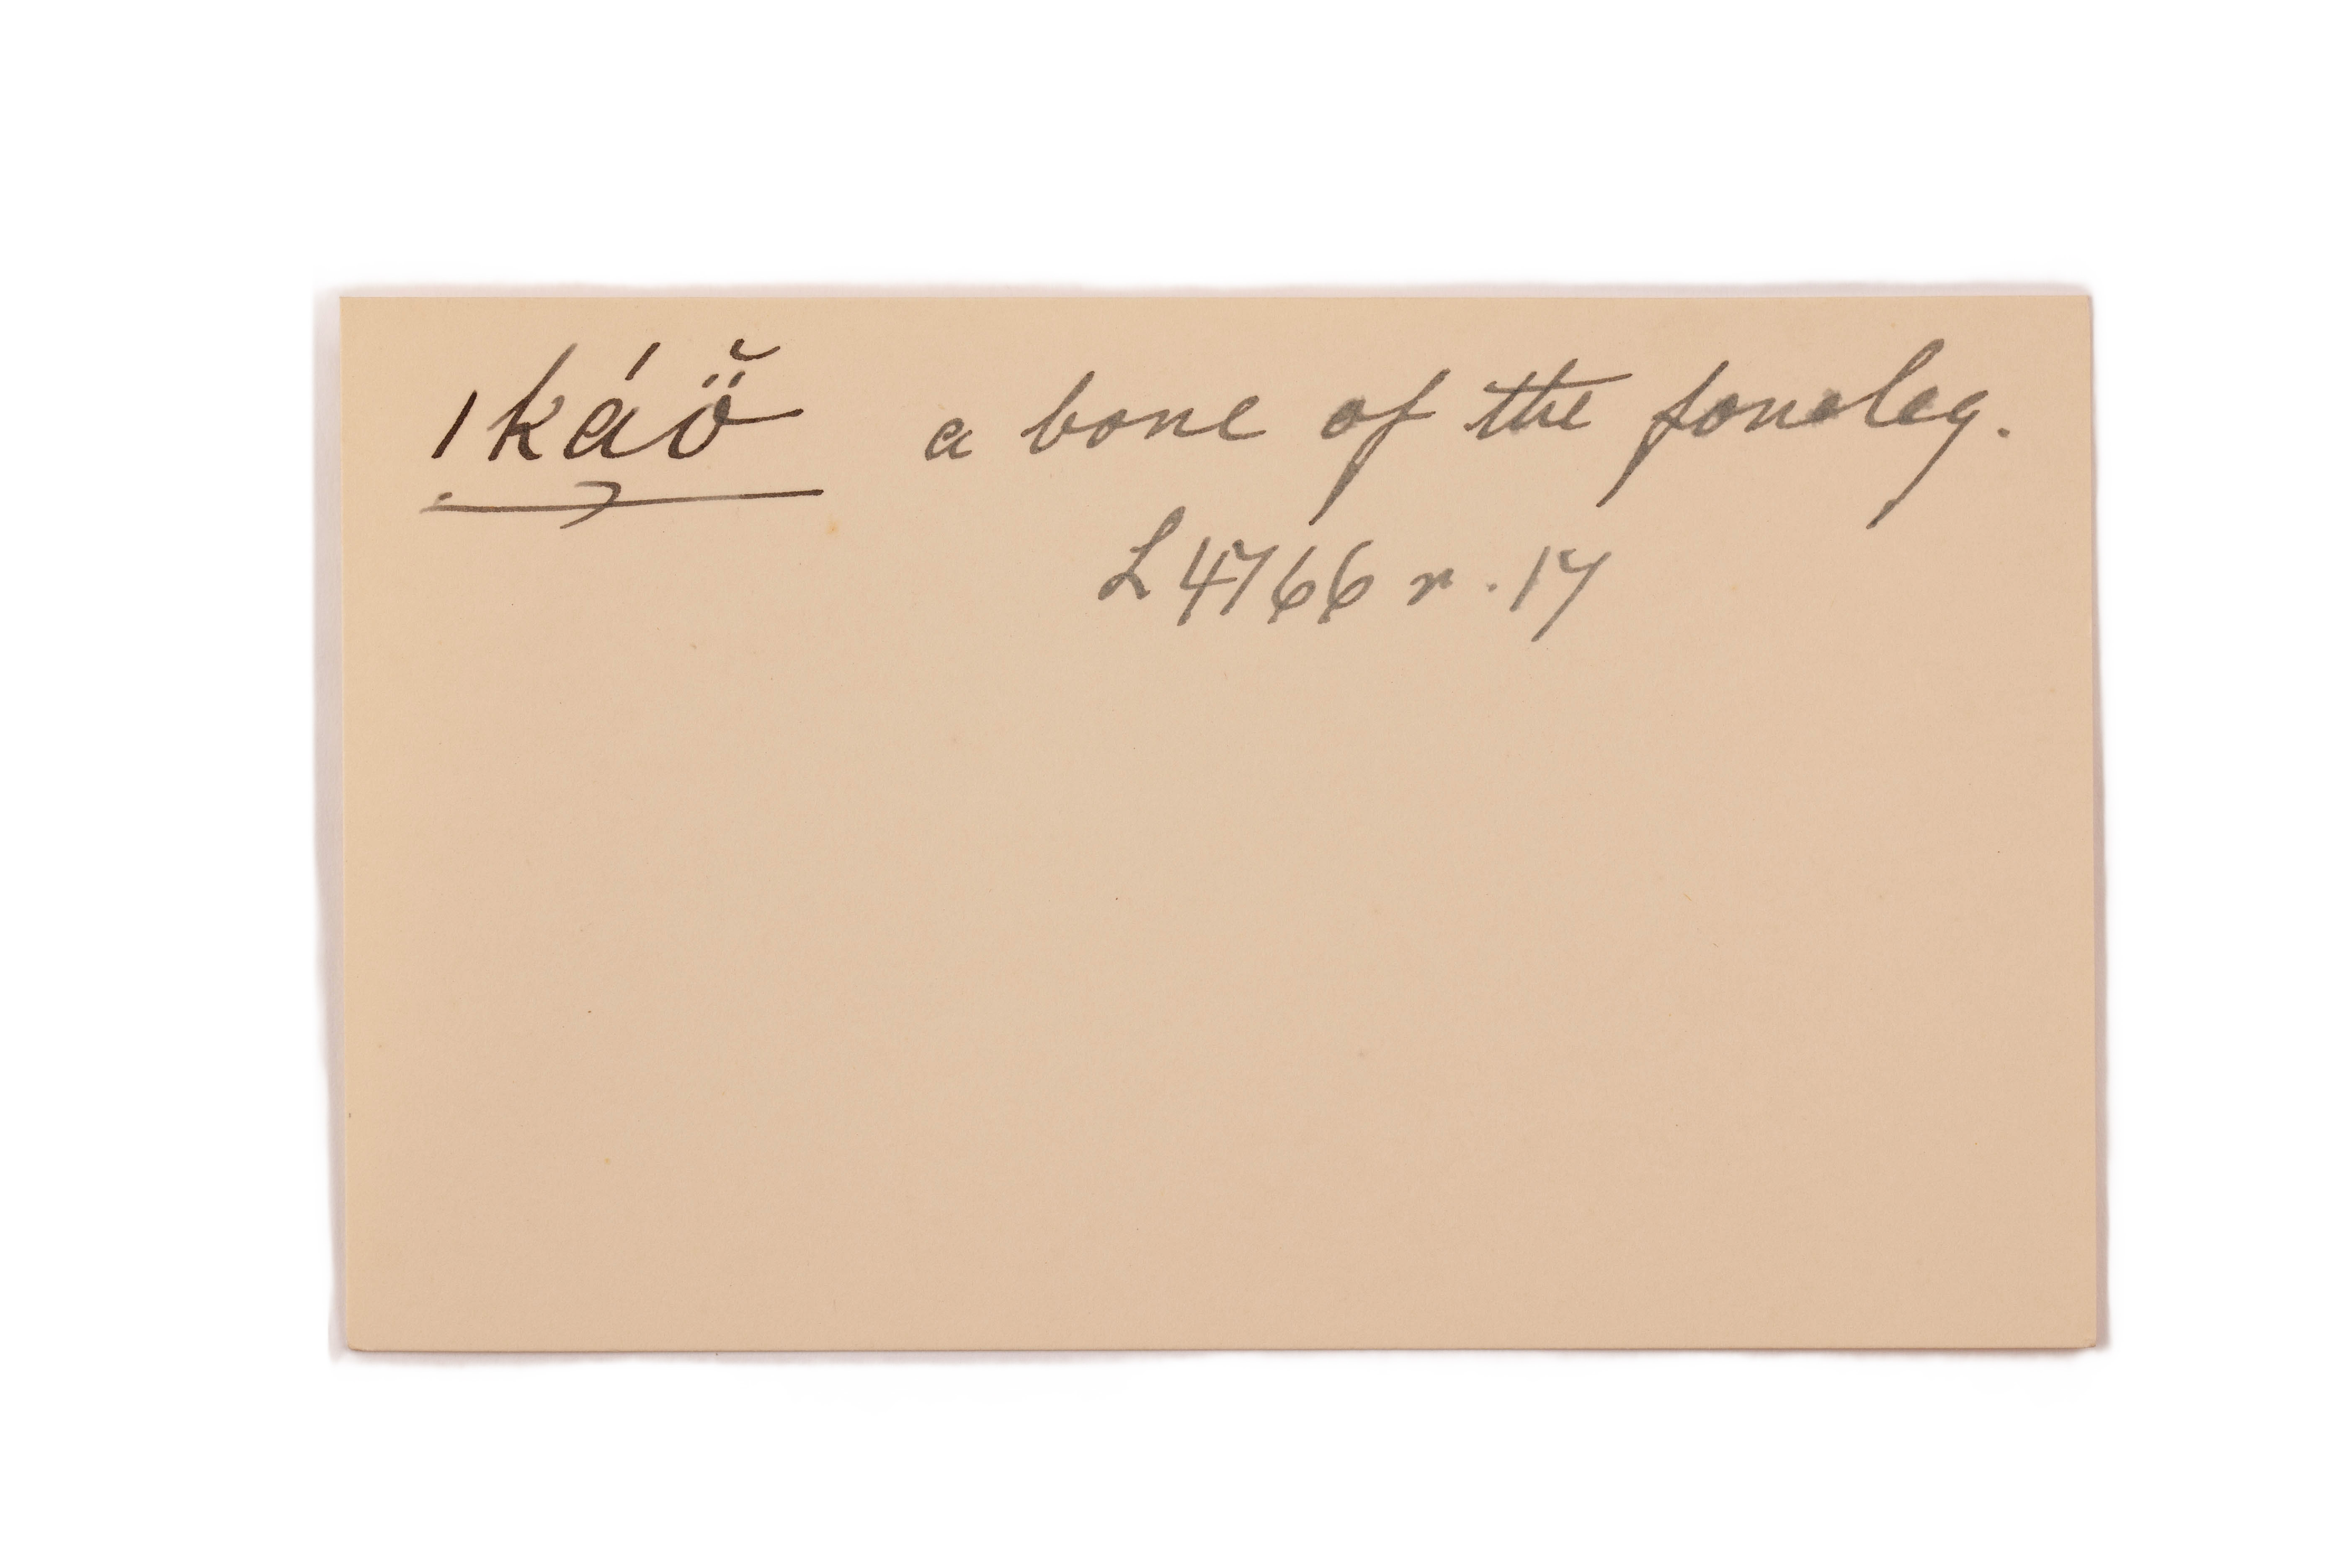 ǀkáö̆ a bone of the foreleg.
L 4766 r. 17